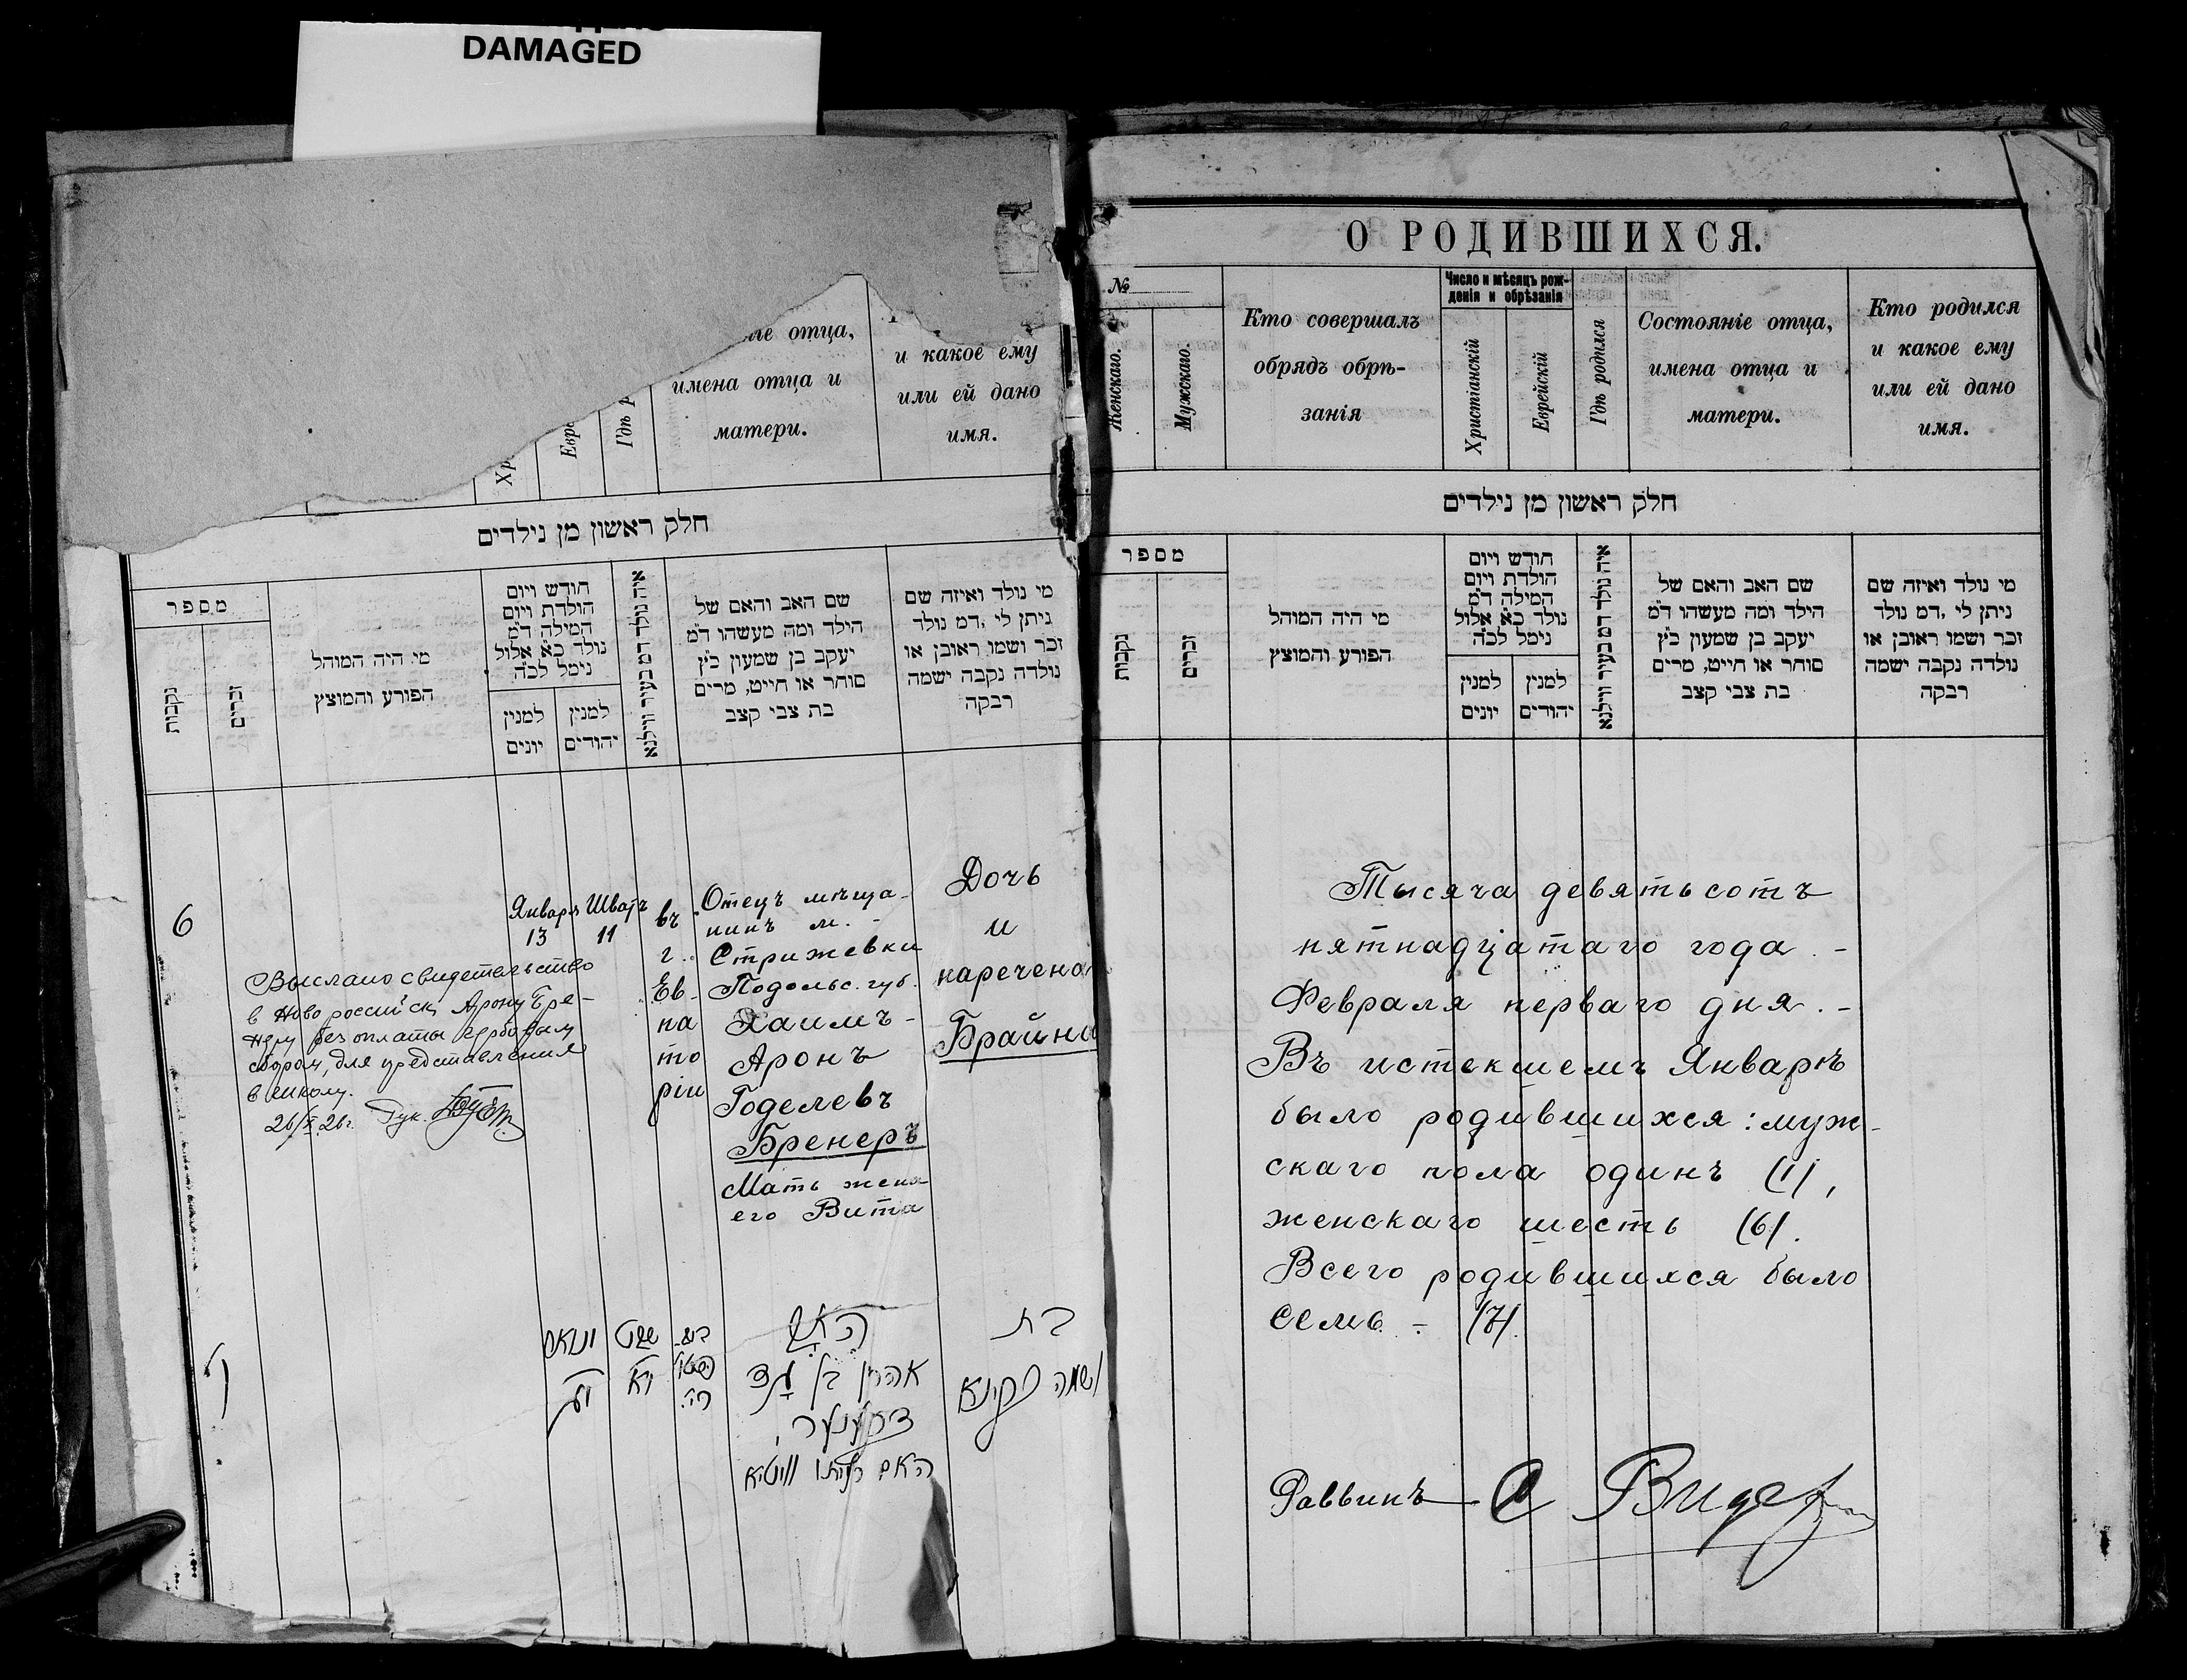 DAMAGED
отца,
имена отца и
матери.
и какое ему
или ей дано
имя.
חלק ראשון מן נילדים
מספר
נקבות
זכרים
מי היה המוהל
הפורע והמוצץ
חודש ויום
הולדת ויום
המילה ד״מ
נולד כ״א אלול
נימל לכ״ה
למנין
יונים
למנין
יהודים
איה נולד דמ בעיר ווילנא
שם האב והאם של
הילד ומה מעשהו ד״מ
יעקב בן שמעון כ״ץ
סוחר או חייט, מרים
בת צבי קצב
מי נולד ואיזה שם
ניתן לי ,דמ נולד
זכר ושמו ראובן או
נולדה נקבה ישמה
רבקה
6
Января
13
Шватъ
11
въ
г.
Ев-
па
то
ріи
Отецъ мѣща-
нинъ м. -
Стрижевки
Подольс. губ.
Хаимъ-
Аронъ
Годелевъ
Бренеръ
Мать жена
его Вита
Дочь
и
наречена
Брайна
Выслано свидетельство
в Новороссийск Арону Бре-
неру без оплаты гербовым
сбором, для представления
в школу.
26/X 26г.
ו
ינואר
יג
שבט
יא
האב
אהרן בן
ברענער
האם וויטא
בת
ושמה בריינא
О РОДИВШИХСЯ.
№
Женскаго.
Мужскаго.
Кто совершалъ
обрядъ обрѣ-
занія
Число и мѣсяцъ рож-
денія и обрѣзанія
Христіанскій
Еврейскій
Гдѣ родился
Состояніе отца,
имена отца и
матери.
Кто родился
и какое ему
или ей дано
имя.
חלק ראשון מן נילדים
מספר
נקבות
זכרים
מי היה המוהל
הפורע והמוצץ
חודש ויום
הולדת ויום
המילה ד״מ
נולד כ״א אלול
נימל לכ״ה
למנין
יונים
למנין
יהודים
איה נולד דמ בעיר ווילנא
שם האב והאם של
הילד ומה מעשהו ד״מ
יעקב בן שמעון כ״ץ
סוחר או חייט, מרים
בת צבי קצב
מי נולד ואיזה שם
ניתן לי ,דמ נולד
זכר ושמו ראובן או
נולדה נקבה ישמה
רבקה
Тысяча девятьсотъ
пятнадцатаго года. -
Февраля перваго дня. -
Въ истекшемъ Январѣ
было родившихся: муж-
скаго пола одинъ (1),
женскаго шесть (6).
Всего родившихся было
семь - (7).
Раввинъ